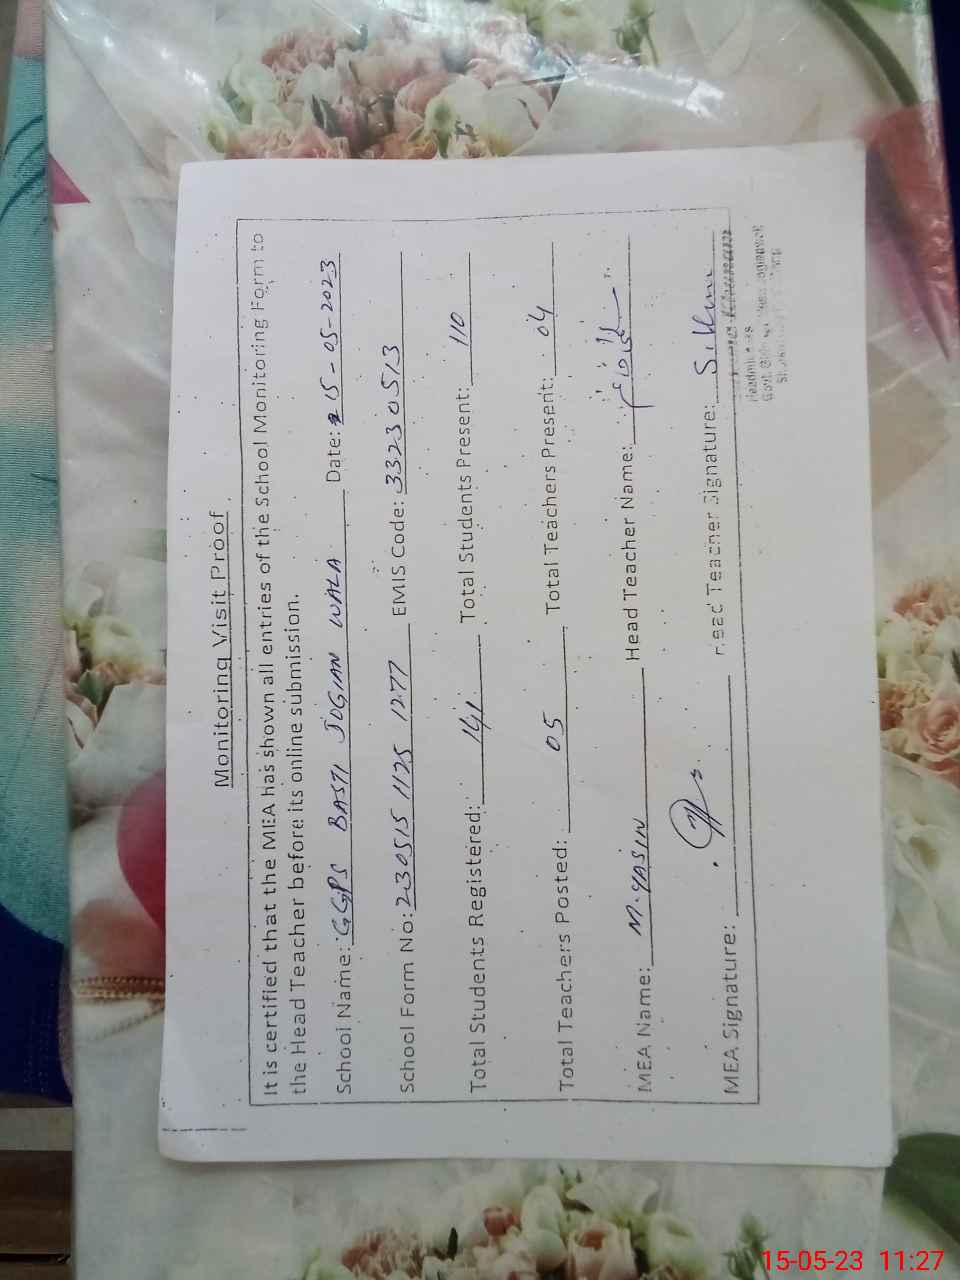 Monitoring Visit Proof
It is certified that the MEA has shown all entries of the School Monitoring Form to
the Head Teacher before its online submission.
School Name: GGPS BASTI JOGIAN WALA Date: 15-05-2023
School Form No: 230515 1125 1277 EMIS Code: 33230513
Total Students Registered: 141 Total Students Present: 110
Total Teachers Posted: 05 Total Teachers Present: 04
MEA Name: M. YASIN Head Teacher Name:
MEA Signature: Head Teacher Signature:
15-05-23 11:27